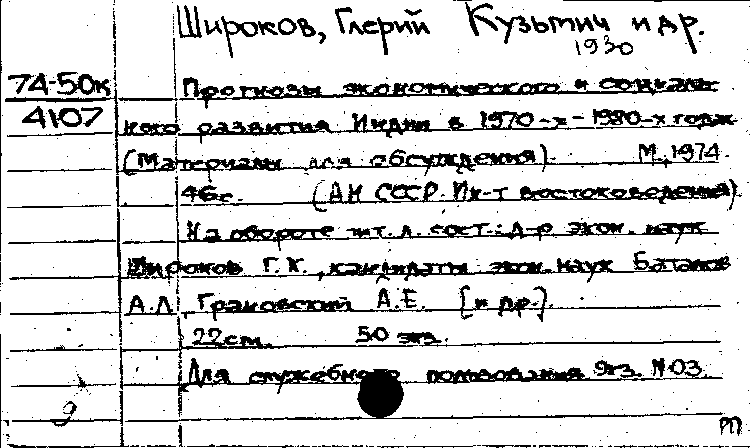 Широков, Глерий Кузьмич и др.
1930
74-50к
4107
Прогнозы экономического и социаль-
ного развития Индии в 1970-х-1980-х годах
(Материалы для обсуждения). М., 1974.
46с. (АН СССР. Ин-т востоковедения).
На обороте тит. л. сост.: д-р экон. наук
Широков Г.К., кандидаты экон. наук Баталов
А.Л., Граковский А.Е. [и др.].
22см. 50 экз.
Для служебного пользования Экз. №03.
9
m